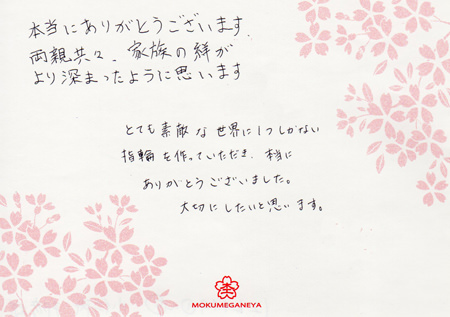 本当にありがとうございます.
両親共々、家族の絆が
より深まったように思います
とても素敵な世界に1つしかない
指輪を作っていただき、本当に
ありがとうございました。
大切にしたいと思います。
MOKUMEGANEYA